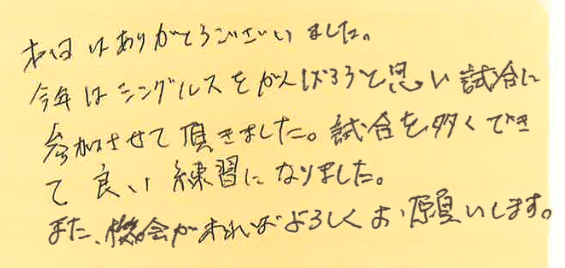 本日はありがとうございました。
今年はシングルスをがんばろうと思い試合に
参加させて頂きました。試合を多くでき
て良い練習になりました。
また、機会があればよろしくお願いします。